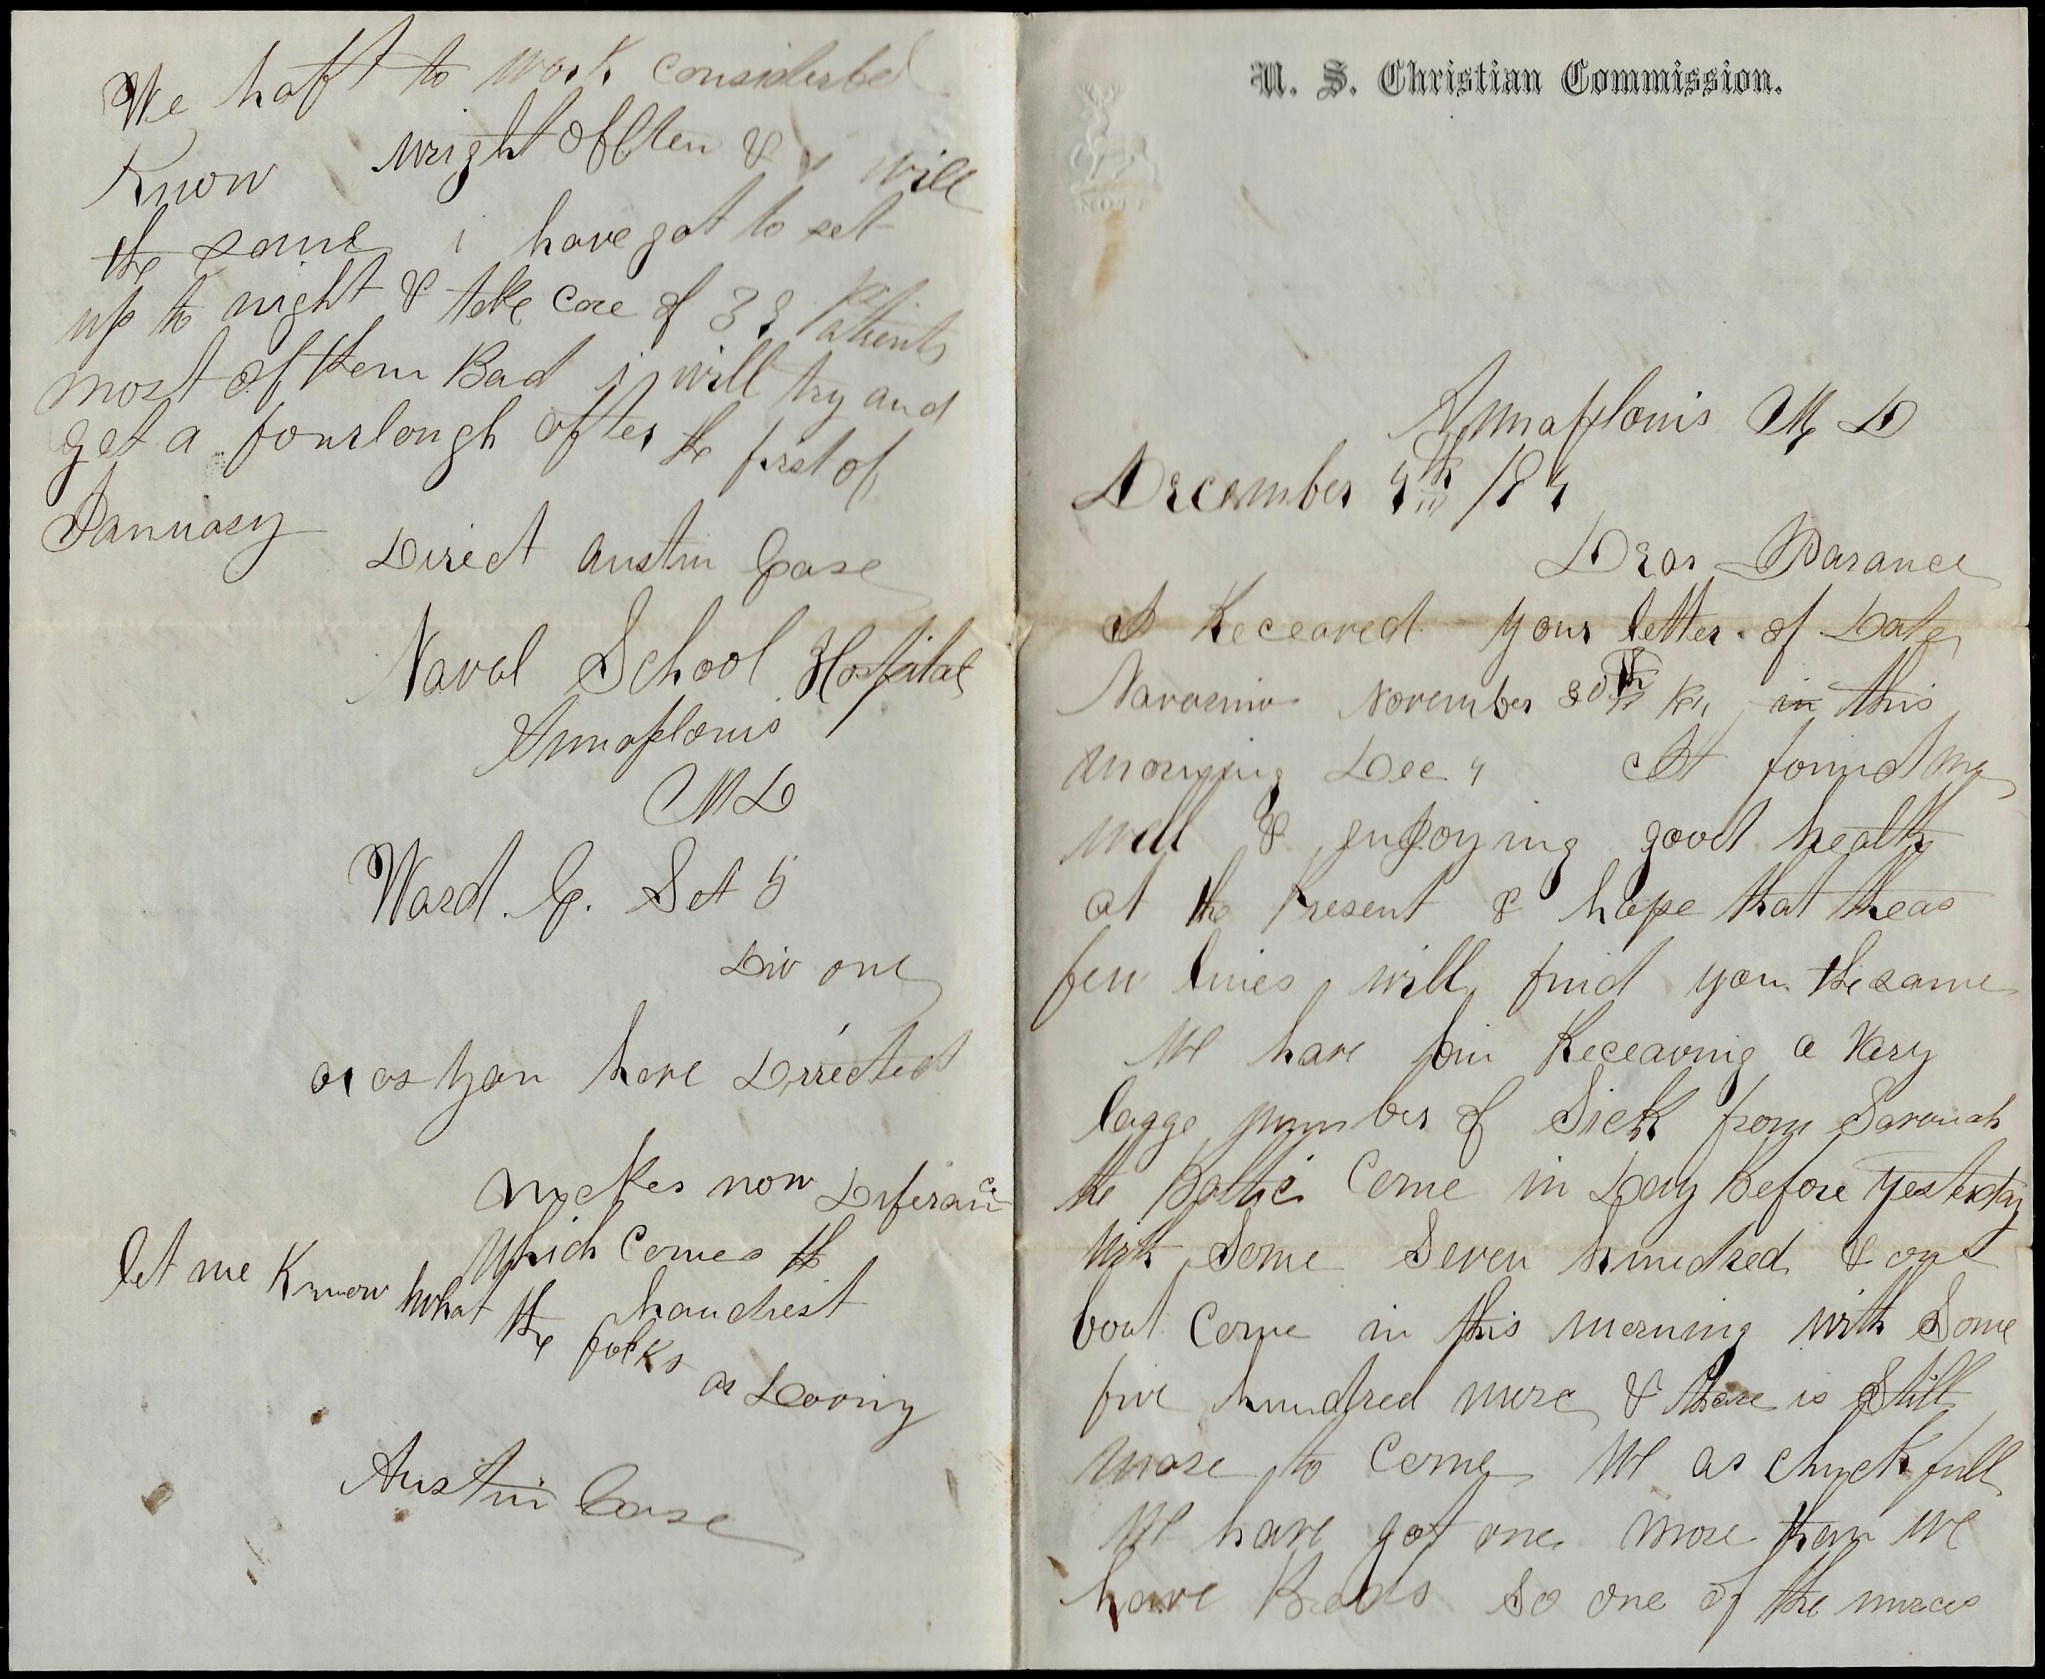 U. S. Christian Commission.
Annaplouis M D
December 4th / 84
Dear Parance
I Receaved your letter of Date
November 30th in this
morning Dec 4 It found me
well & enjoying good health
at the Present & hope that theas
few lines will find you the same
We have bin Receaving a Very
large number of Sick from Savanah
the Baltic Come in Day Before yesterday
with Some Seven hundred & one
boat Come in this morning with Some
five hundred more & thare is Still
more to Come We ar chuck full
We have got one more than we
have Beads So one of the nurces
We haft to work considerbel
Know wright offten & i will
the same i have got to set
up to night & take care of 33 Patients
most of them Bad i will try and
get a fourlough after the first of
January
Direct Austin Case
Naval School Hospital
Annaplouis
M D
Ward. C. Set 5
Div one
or as you have Dirrected
myckes now Diferance
which comes the
handiest
let me Know what the folks ar Dooing
Austin Case